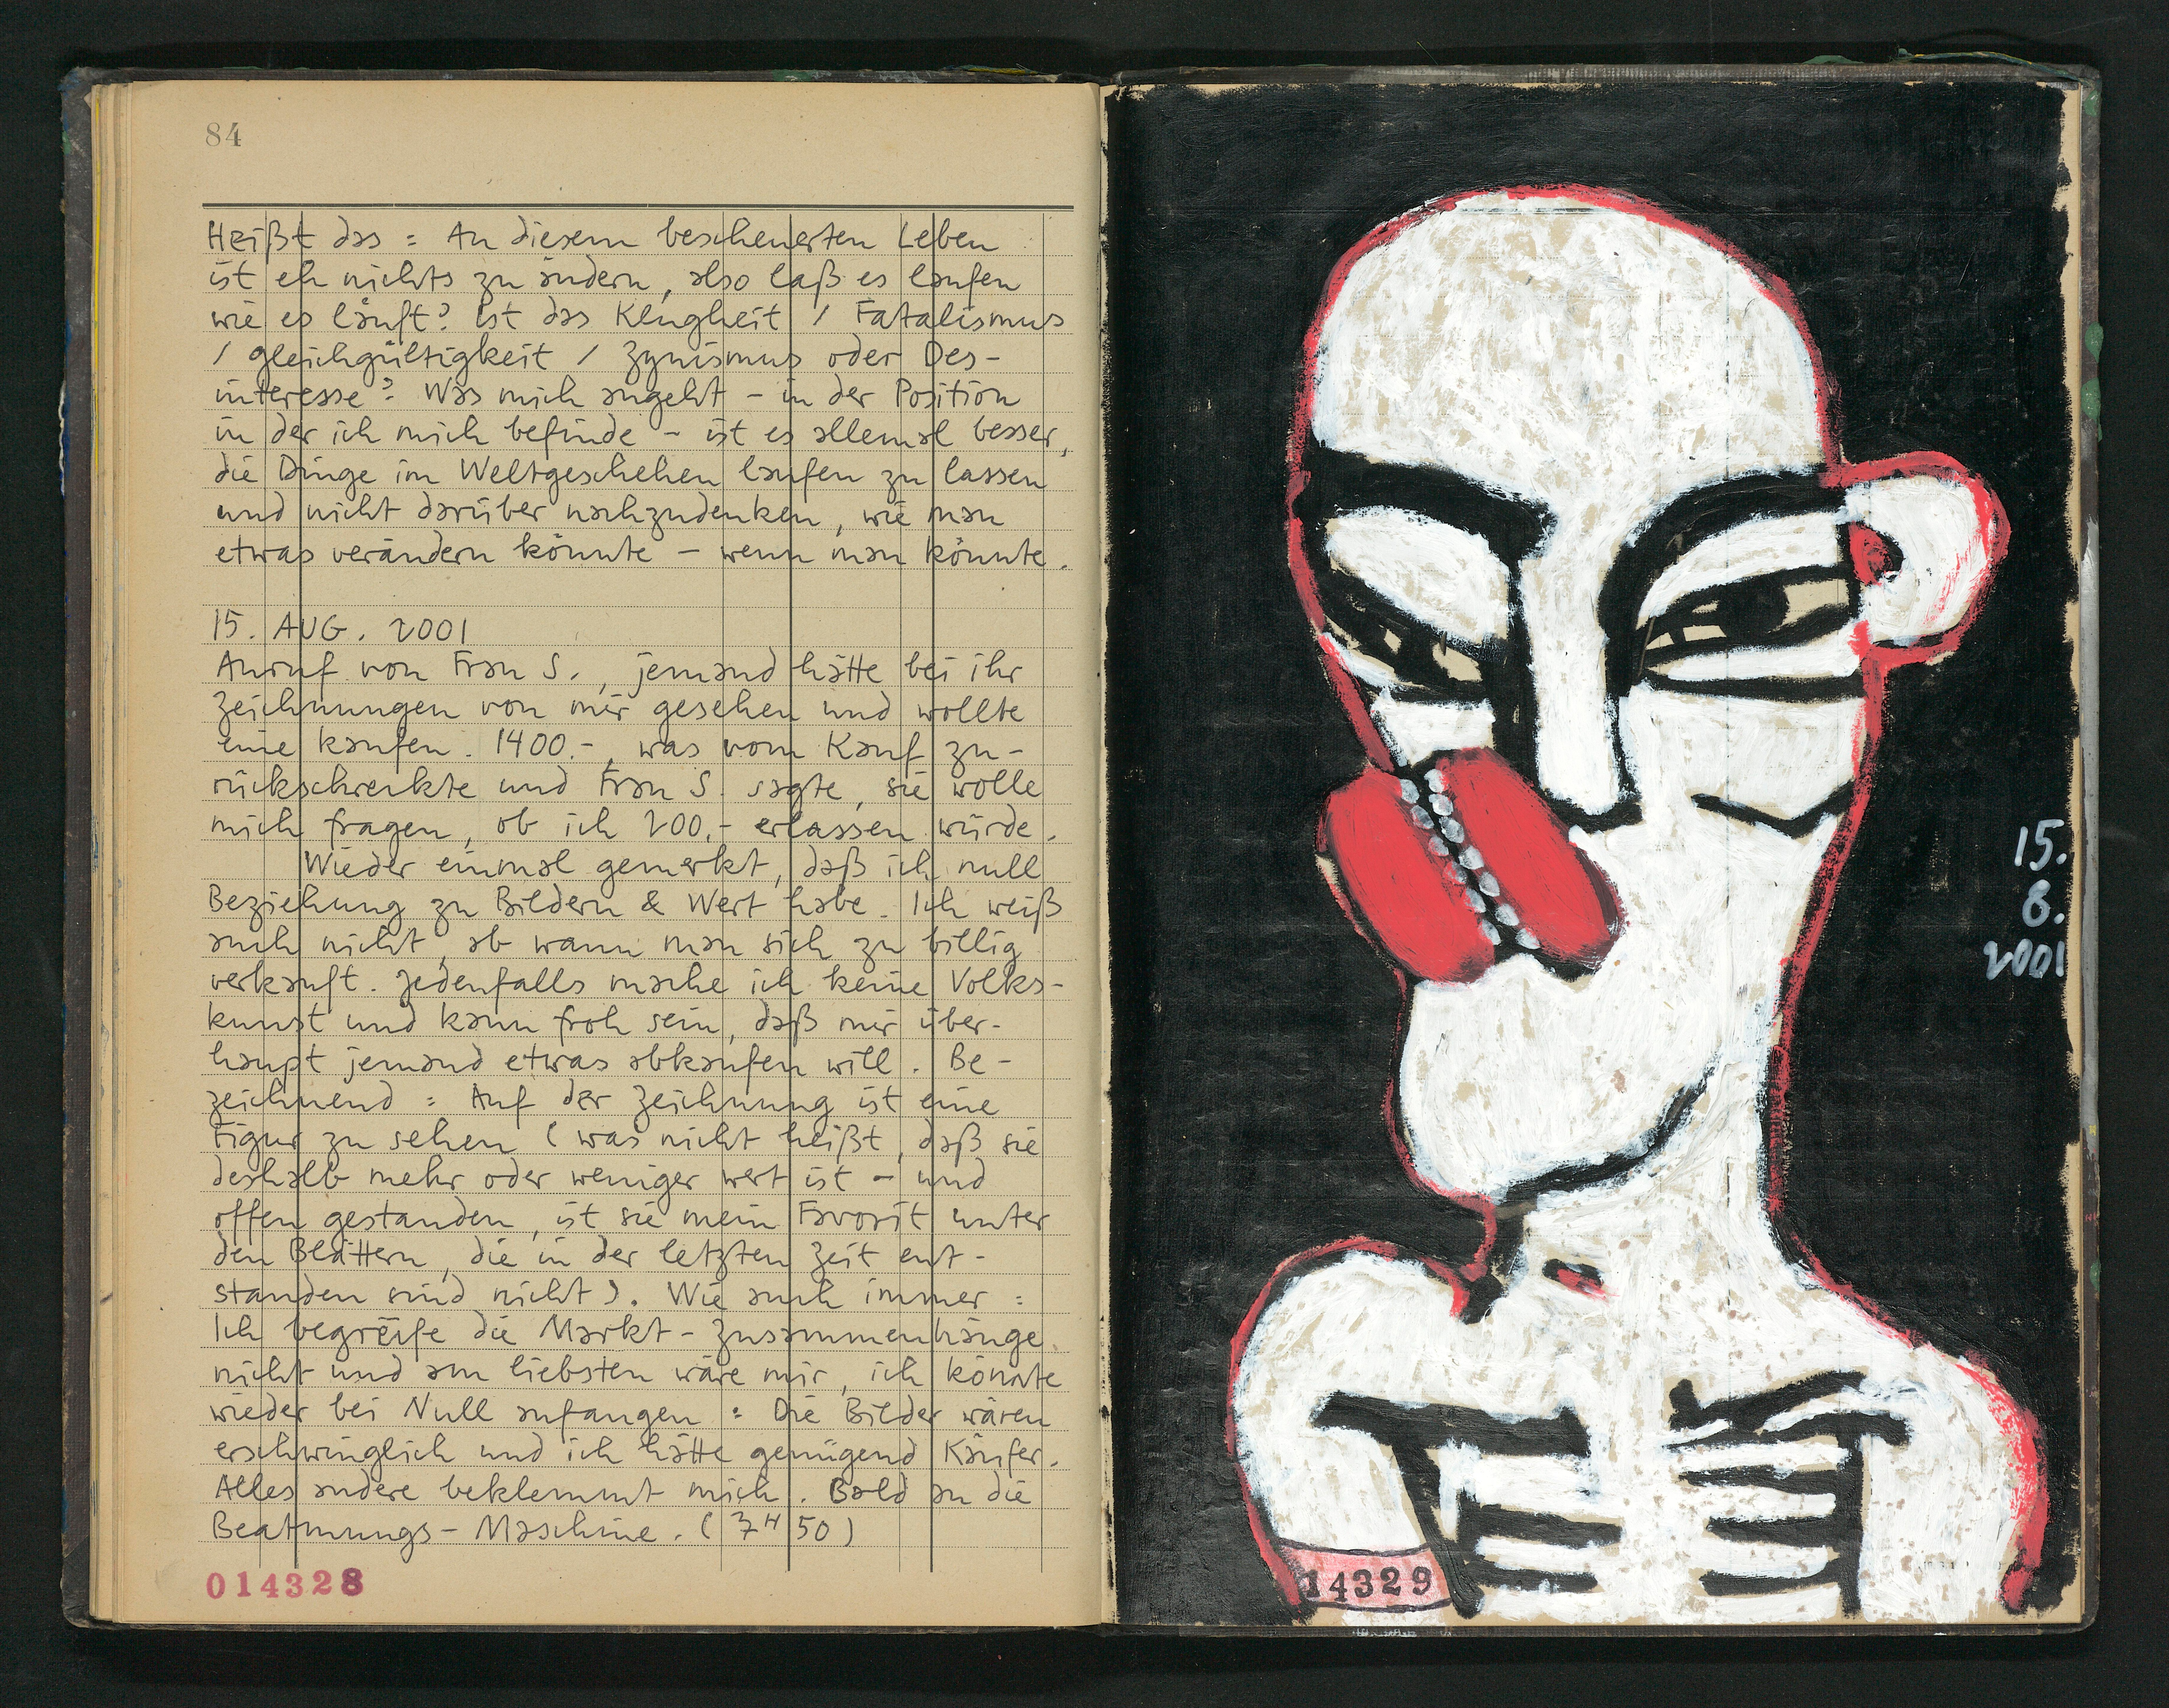 84
Heißt das: An diesem bescheuerten Leben
ist eh nichts zu ändern, also laß es laufen
wie es läuft? Ist das Klugheit / Fatalismus
/ Gleichgültigkeit / Zynismus oder Des-
interesse? Was mich angeht - in der Position
in der ich mich befinde - ist es allemal besser,
die Dinge im Weltgeschehen laufen zu lassen
und nicht darüber nachzudenken, wie man
etwas verändern könnte - wenn man könnte.
15. AUG. 2001
Anruf von Frau S., jemand hätte bei ihr
Zeichnungen von mir gesehen und wollte
eine kaufen. 1400.-, was vom Kauf zu-
rückschreckte und Frau S. sagte, sie wolle
mich fragen, ob ich 200,- erlassen würde.
Wieder einmal gemerkt, daß ich null
Beziehung zu Bildern & Wert habe. Ich weiß
auch nicht, ab wann man sich zu billig
verkauft. Jedenfalls mache ich keine Volks-
kunst und kann froh sein, daß mir über-
haupt jemand etwas abkaufen will. Be-
zeichnend: Auf der Zeichnung ist eine
Figur zu sehen (was nicht heißt, daß sie
deshalb mehr oder weniger wert ist - und
offen gestanden, ist sie mein Favorit unter
den Blättern, die in der letzten Zeit ent-
standen sind nicht). Wie auch immer:
Ich begreife die Markt-Zusammenhänge
nicht und am liebsten wäre mir, ich könnte
wieder bei Null anfangen: Die Bilder wären
erschwinglich und ich hätte genügend Käufer.
Alles andere beklemmt mich. Bald an die
Beatmungs-Maschine. (7H 50)
014328
15.
8.
2001
14329